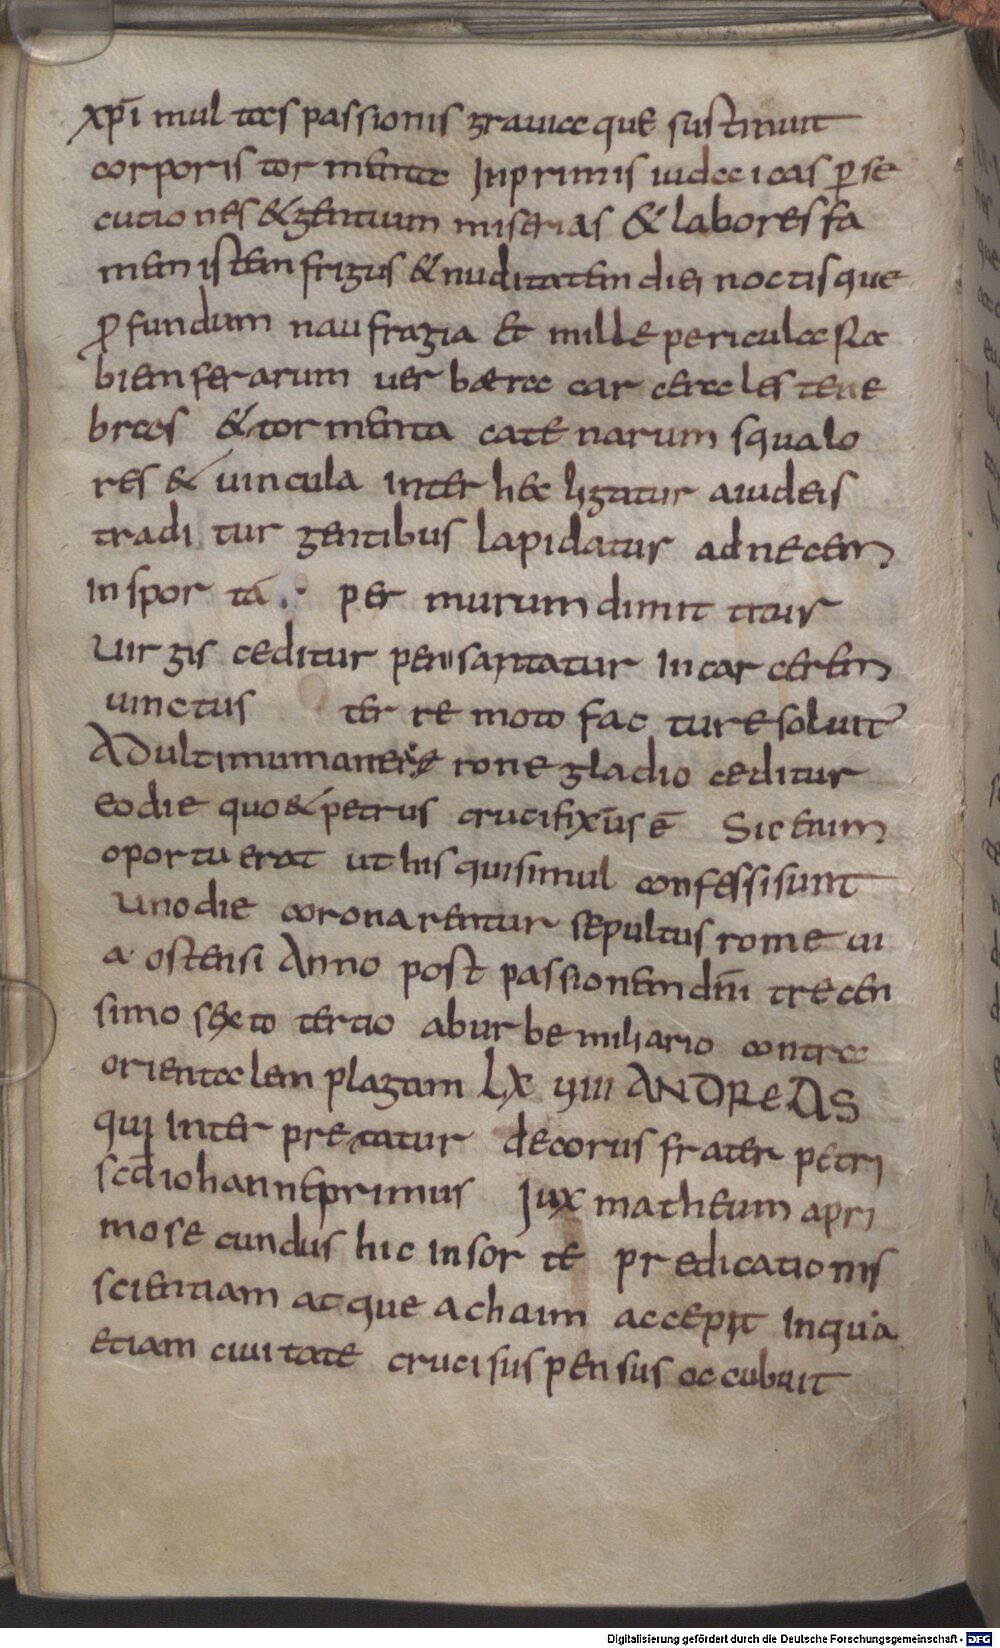 xp̄i multas passionis grauiaque sustinuit
corporis tormenta Inprimis iudaicas p̲se
cutiones & gentium miserias & labores fa
mem istem frigus & nuditatem diei noctisque
ꝓfundum naufragia Et mille pericula Ra
biem ferarum uerbera carcerales tene
bras & tormenta catenarum squalo
res & uincula inter hec ligatur aiudeis
traditur gentibus lapidatur adnecem
in sporta . per murum dimittitur
uirgis ceditur pensantatur incarcerem
uinctus terre moto facture soluit̄
Adultimum anerone gladio ceditur
eodie quo & petrus crucifixus ē Sic enim
oportuerat ut his qui simul confessi sunt
uno die coronarentur sepultus rome ui
a ostensi Anno post passionem dn̄i trecen
simo sexto tertio aburbe miliario contra
orientalem plagam LX VIIII ANDREAS
qui interpretatur decorus frater petri
scd iohannem primus Jux matheum apri
mo secundus hic in sorte predicationis
scientiam atque achaim accepit inqua
etiam ciuitate cruci suspensus occubuit
Digitalisierung gefördert durch die Deutsche Forschungsgemeinschaft - DFG